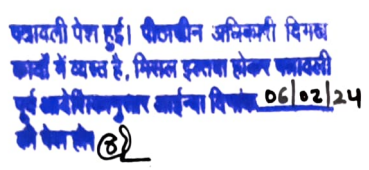 पत्रावली पेश हुई। पीठासीन अधिकारी दिगर
कार्यो में व्यस्त है, मिसल इल्तवा होकर पत्रावली
पूर्व आदेशिकानुसार आईन्दा दिनांक 06/02/24
को पेश हो।